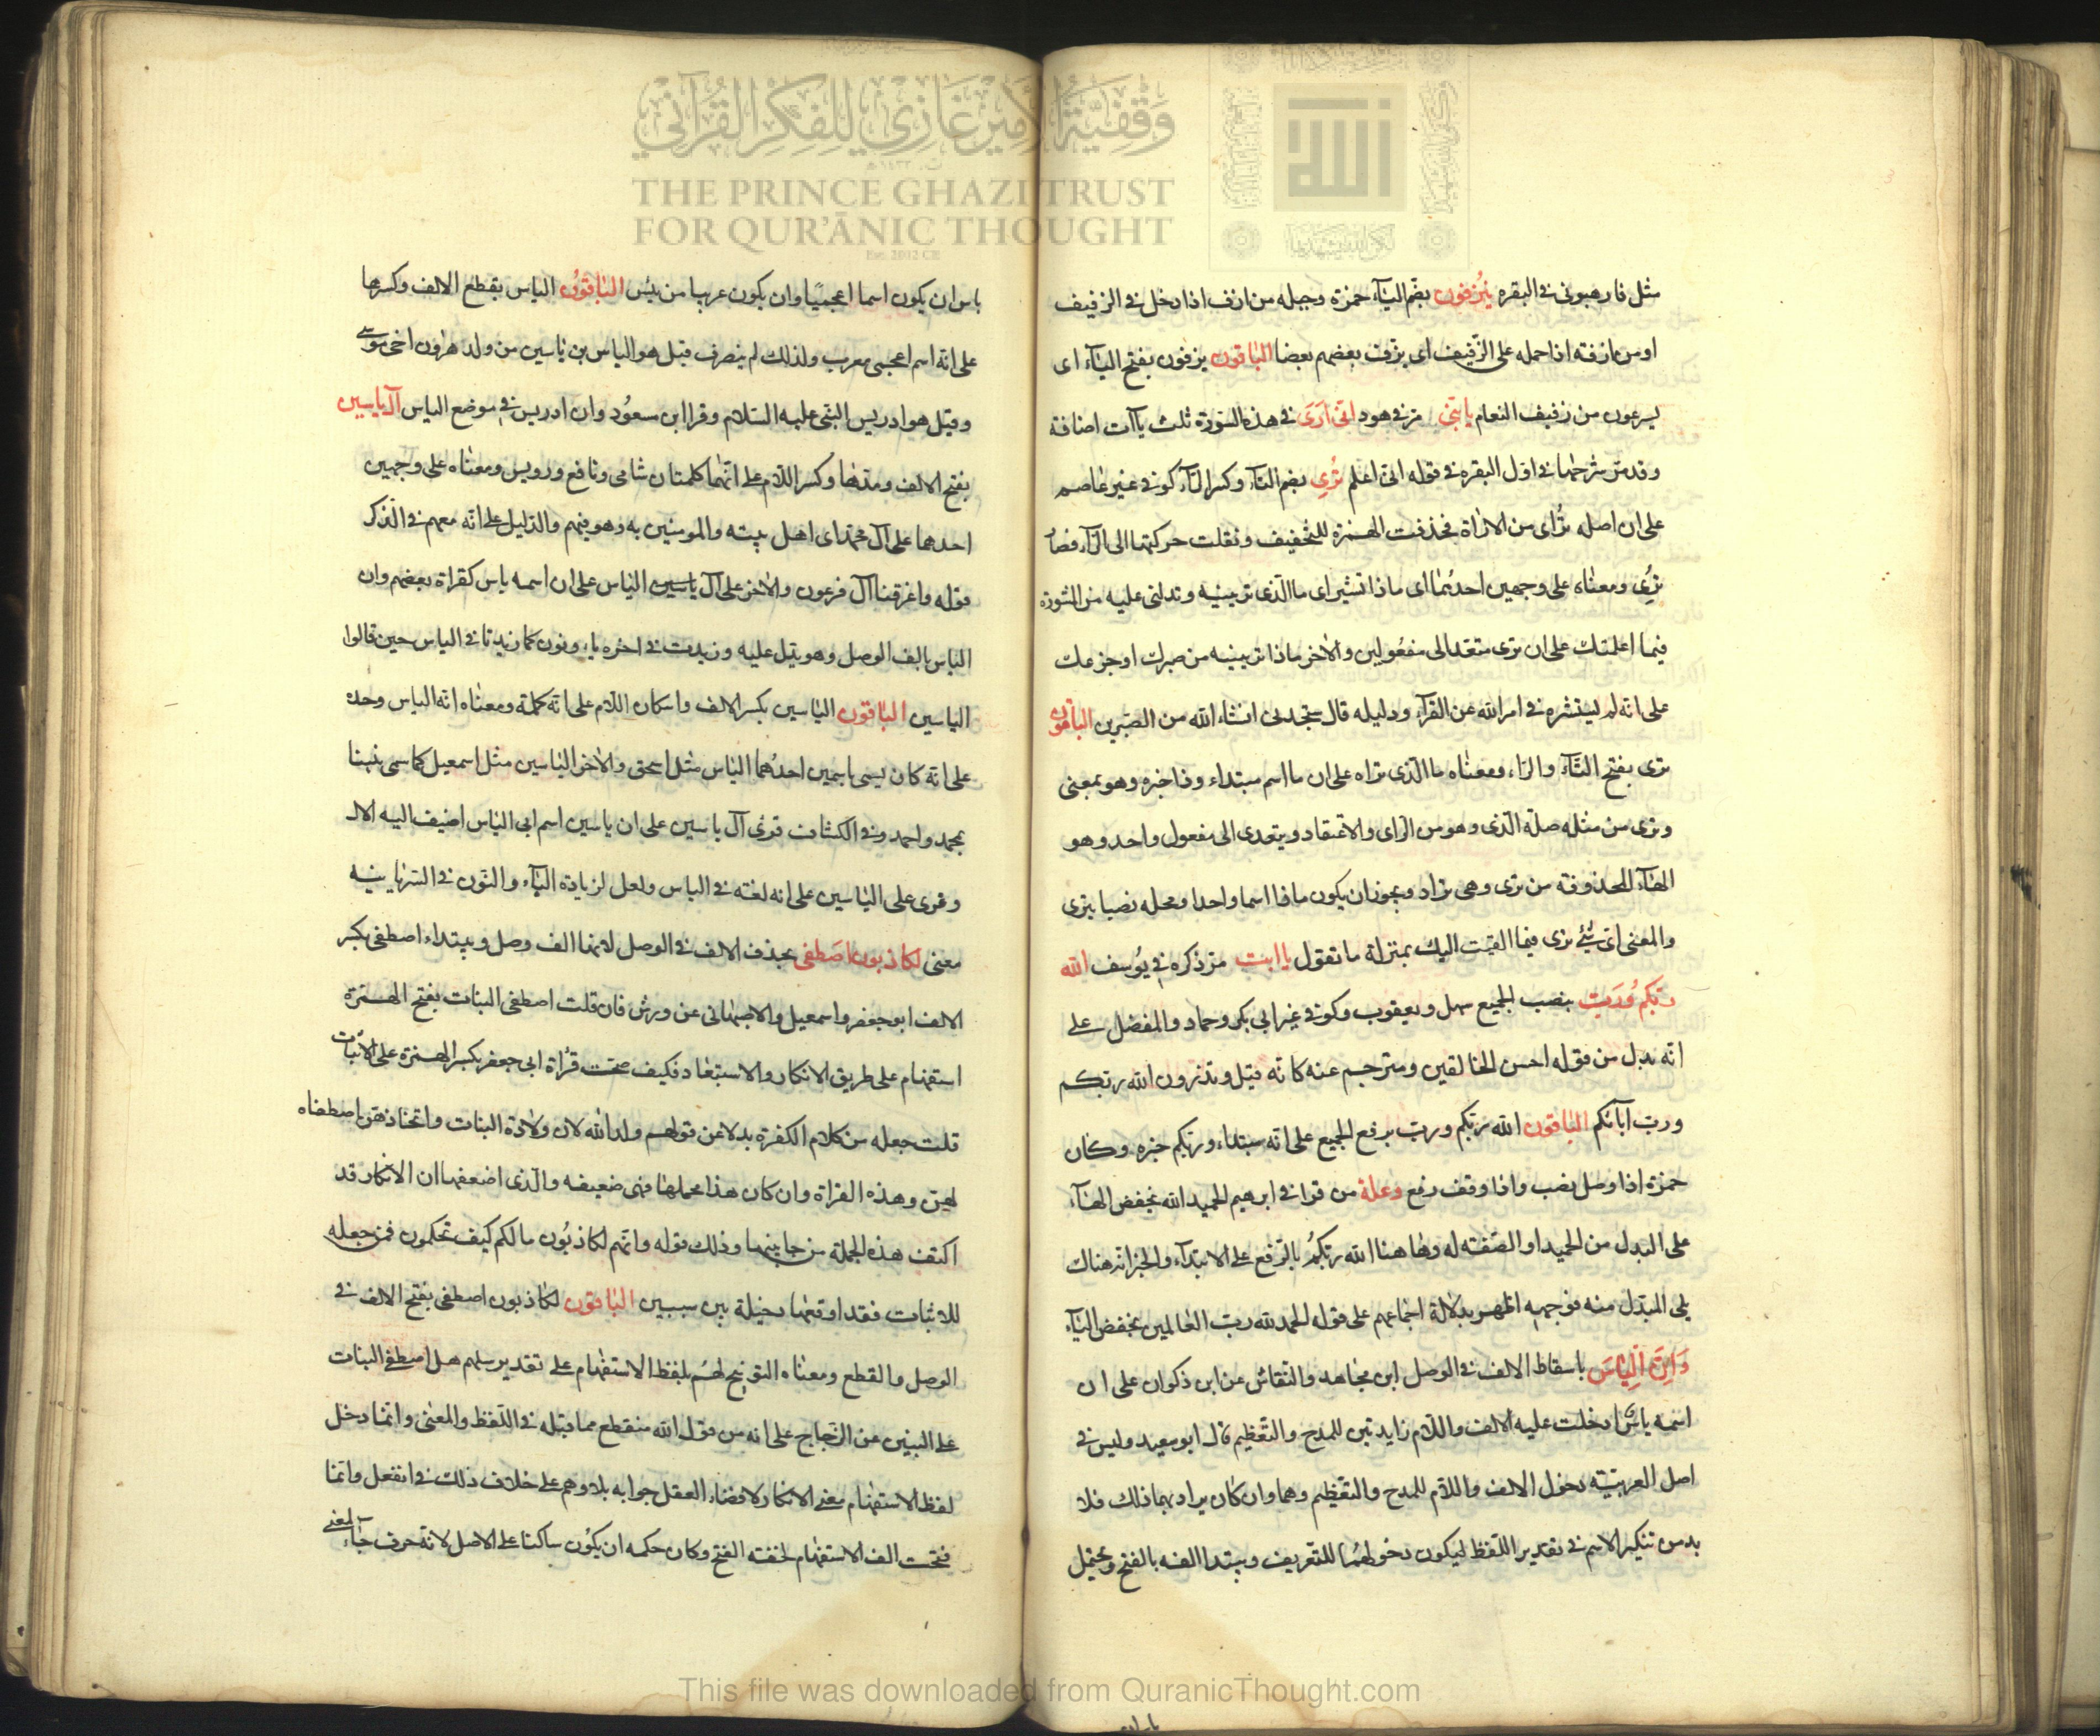 وقفية الأمير غازي للفكر القرآني
THE PRINCE GHAZI TRUST
FOR QUR'ĀNIC THOUGHT
Est. 2012 CE
مثل فارهبونى فى البقره يُزفون بضم اليآء حمزة وجبله من ازف اذا دخل فى الزفيف
اومن ازفته اذا حمله على الزّفيف اى يزّف بعضهم بعضا الباقون يزفون بفتح اليآء اى
يسرعون من زفيف النعام يابنىّ مرّ فى هود انى ارَى فى هذه السّورة ثلث يآآت اضافة
وقد مرّ شرحها فى اول البقره فى قوله انى اعلم تُرِى بضم التآء وكسر الرآء كوفى غير عاصم
على ان اصله تُراى من الاراة فحذفت الهمزة للتخفيف ونقلت حركتها الى الرآء فصار
تُرِى ومعناه على وجهين احدهما اى ماذا تشير اى ما الذى تريينيه وتدلنى عليه من الشورة
فيما اعلمتك على ان ترى متعد الى مفعولين والآخر ماذا تريينيه من صبرك اوجزعك
على انه لم يستشره فى امر الله عن الفرآء ودليله قال ستجدنى انشاء الله من الصّبرين الباقون
ترى بفتح التّآء والرّاء ومعناه ما الّذى تراه على ان ما اسم مبتداء وذا خبره وهو بمعنى
وترى من مثله صلة الّذى وهو من الرّاى والاعتقاد ويتعدى الى مفعول واحد وهو
الهآء المحذوفة من ترى وهى تراد ويجوز ان يكون ماذا اسما واحدا ومحله نصبا بترى
والمعنى اىّ شئ ترى فيما القيت اليك بمنزلة ما تقول يا ابت مرّ ذكره فى يُوسف الله
ربّكم وُرَبّ بنصب الجميع سهل ويعقوب وكوفى غير ابى بكر وحماد والمفضل على
انّه بدل من قوله احسن الخالقين ومترجم عنه كانّه قيل وتذرون الله ربّكم
وربّ آبآئكم الباقون الله ربّكم وربّ برفع الجميع على انّه مبتداء وربّكم خبره وكان
حمزة اذا وصل نصب واذا وقف رفع وعلة من قرا فى ابرهيم الحميد الله بخفض الهآء
على البدل من الحميد او الصّفة له وهاهنا الله ربّكُم بالرّفع على الابتدآء والخبر انّه هناك
يلى المبدل منه فوجهه اظهر بدلالة اجماعهم على قوله الحمد لله ربّ العالمين بخفض البآء
وَاِنّ الِياسَ باسقاط الالف فى الوصل ابن مجاهد والنقاش عن ابن ذكوان على ان
اسمه ياس ادخلت عليه الالف واللام زايدتين للمدح والتّعظيم قال ابو سعيد وليس فى
اصل العربيّة دخول الالف واللام للمدح والتعظيم وهما وان كان يراد بهما ذلك فلا
بد من تنكير الاسم فى تقدير اللّفظ ليكون دخولهُما للتعريف ويبتدا الفه بالفتح ويحتمل
ياس ان يكون اسما اعجميّا وان يكون عربيا من يئس الباقون الياس بقطع الالف وكسرها
على انّه اسم اعجمى معرب ولذلك لم ينصرف قيل هو الياس بن ياسين من ولد هرون اخى موسى
وقيل هو ادريس النّبى عليه السّلام وقرا ابن مسعُود وان ادريس فى موضع الياس آل ياسين
بفتح الالف ومدّها وكسر اللّام على انّهما كلمتان شامى ونافع ورويس ومعناه على وجهين
احدهما على آل محمّد اى اهل بيته والمومنين به وهو فيهم والدّليل على انّه معهم فى الذّكر
قوله واغرقنا آل فرعون والآخر على آل ياسين الياس على ان اسمه ياس كقراة بعضهم وان
الياس بالف الوصل وهو يتل عليه وزيدت فى آخره ياء ونون كما زيدتا فى الياس حين قالوا
الياسين الباقون الياسين بكسر الالف واسكان اللّام على انّه كلمة ومعناه انّه الياس وحده
على انّه كان يسمى باسمين احدهما الياس مثل اسحق والآخر الياسين مثل اسمعيل كما سمى نبينا
بمحمد واحمد وفى الكشاف قرئ آل ياسين على ان ياسين اسم ابى الياس اضيف اليه الال
وقرى على الياسين على انه لغته فى الياس ولعل لزيادة اليآء والنّون فى السّريانيه
معنى لكاذبون اصَطفى بحذف الالف فى الوصل لانها الف وصل ويبتداء اصطفى بكسر
الالف ابوجعفر واسمعيل والاصبهانى عن ورش فان قلت اصطفى البنات بفتح الهمزة
استفهام على طريق الانكار والاستبعاد فكيف صحت قرُاة ابى جعفر بكسر الهمزة على الاثبات
قلت جعله من كلام الكفرة بدلا عن قولهم ولد الله لان ولادة البنات واتخاذهن اصطفاه
لهن وهذه القراة وان كان هذا محملها فهى ضعيفه والّذى اضعفها ان الانكار قد
اكتنف هذه الجملة من جانبيها وذلك قوله وانّهم لكاذبُون مالكم كيف تحكمون فمن جعله
للاثبات فقد اوقعها دخيلة بين سببين الباقون لكاذبون اصطفى بفتح الالف فى
الوصل والقطع ومعناه التوبيخ لهُم بلفظ الاستفهام على تقدير سلهم هل اصطفى البنات
على البنين عن الزّجاج على انه من قول الله منقطع مما قبله فى اللّفظ والمعنى وانّما دخل
لفظ الاستفهام معنى الانكار لاقضاء العقل جوابه بلا وهم على خلاف ذلك فى انفعل وانّما
فتحت الف الاستفهام لخفته الفتح وكان حكمه ان يكُون ساكنا على الاصل لانّه حرف جاء لمعنى
This file was downloaded from QuranicThought.com